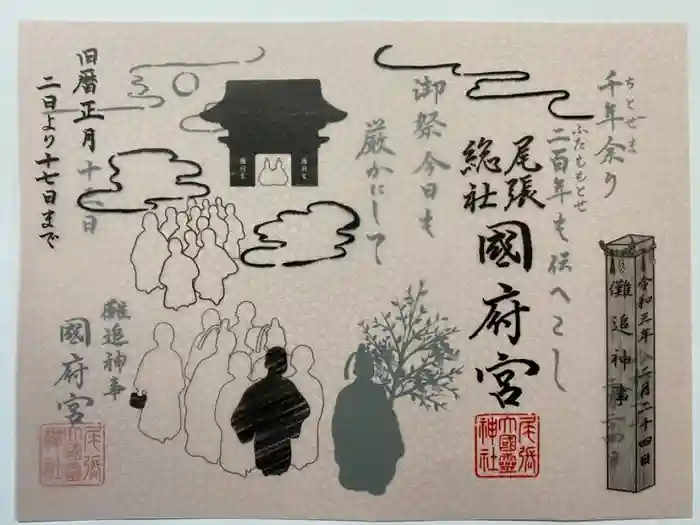 千年余り
ちとせま
二百年も伝へこし
ふたももとせ
御祭今日も
厳かにして
尾張
総社
國府宮
尾張
大國霊
神社
令和三年 二月二十四日
儺追神事
國府宮
國府宮
旧暦正月十三日
二日より十七日まで
儺追神事
國府宮
尾張
大國霊
神社